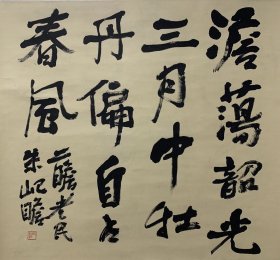 澹蕩韶光
三月中牡
丹偏自占
春風
二瞻老民
朱屺瞻